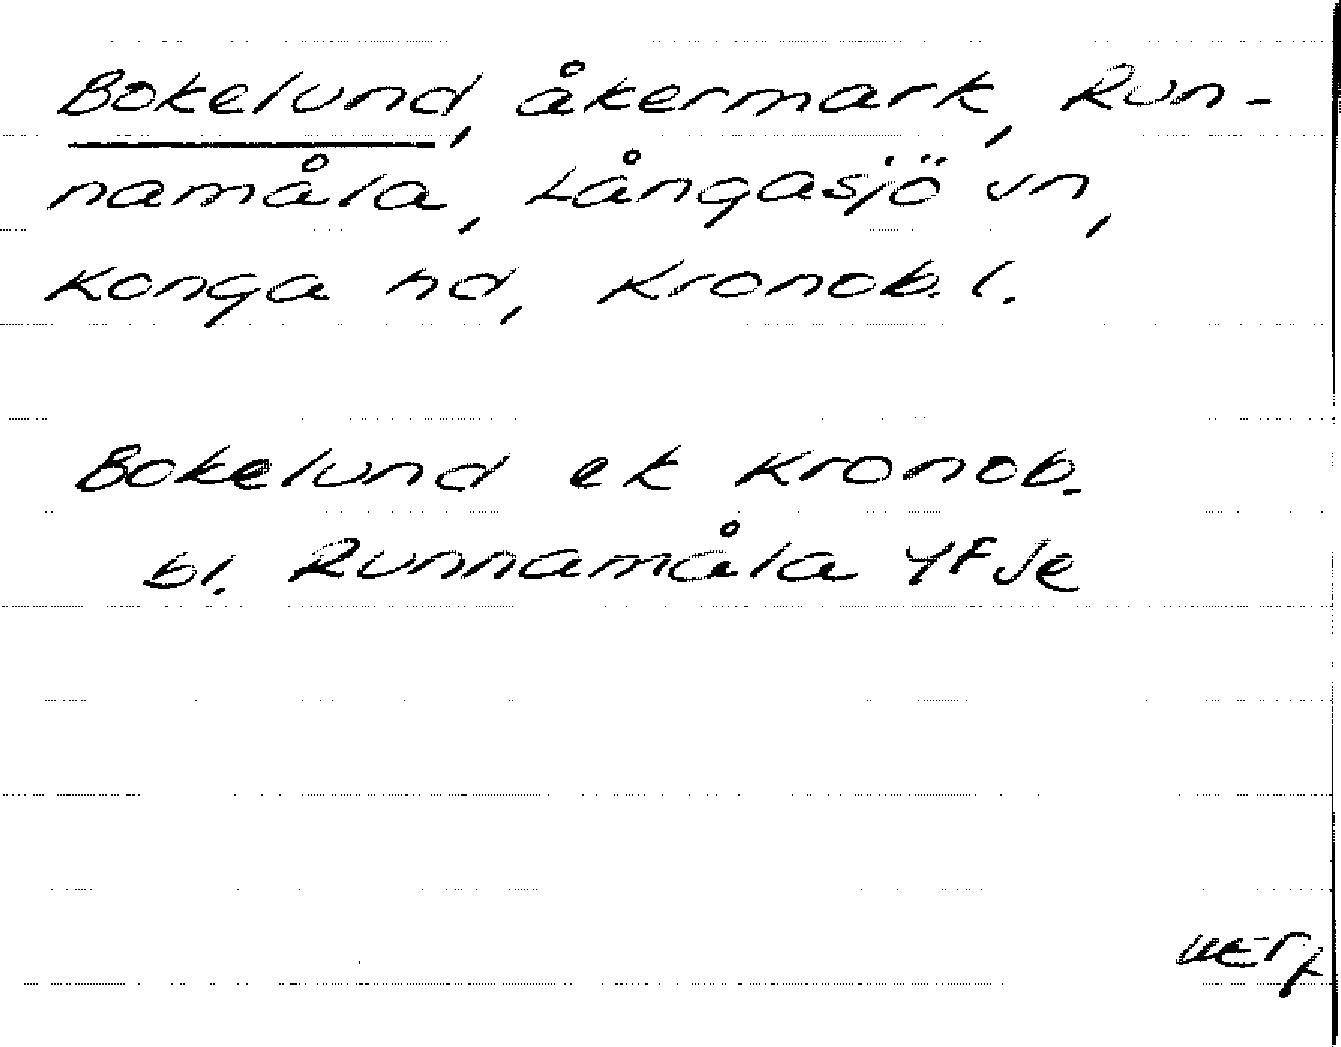 Bokelund, åkermark, Run-
namåla, Långasjö sn,
Konga hd, Kronob. l.
Bokelund ek Kronob.
bl. Runnamåla 4F Je